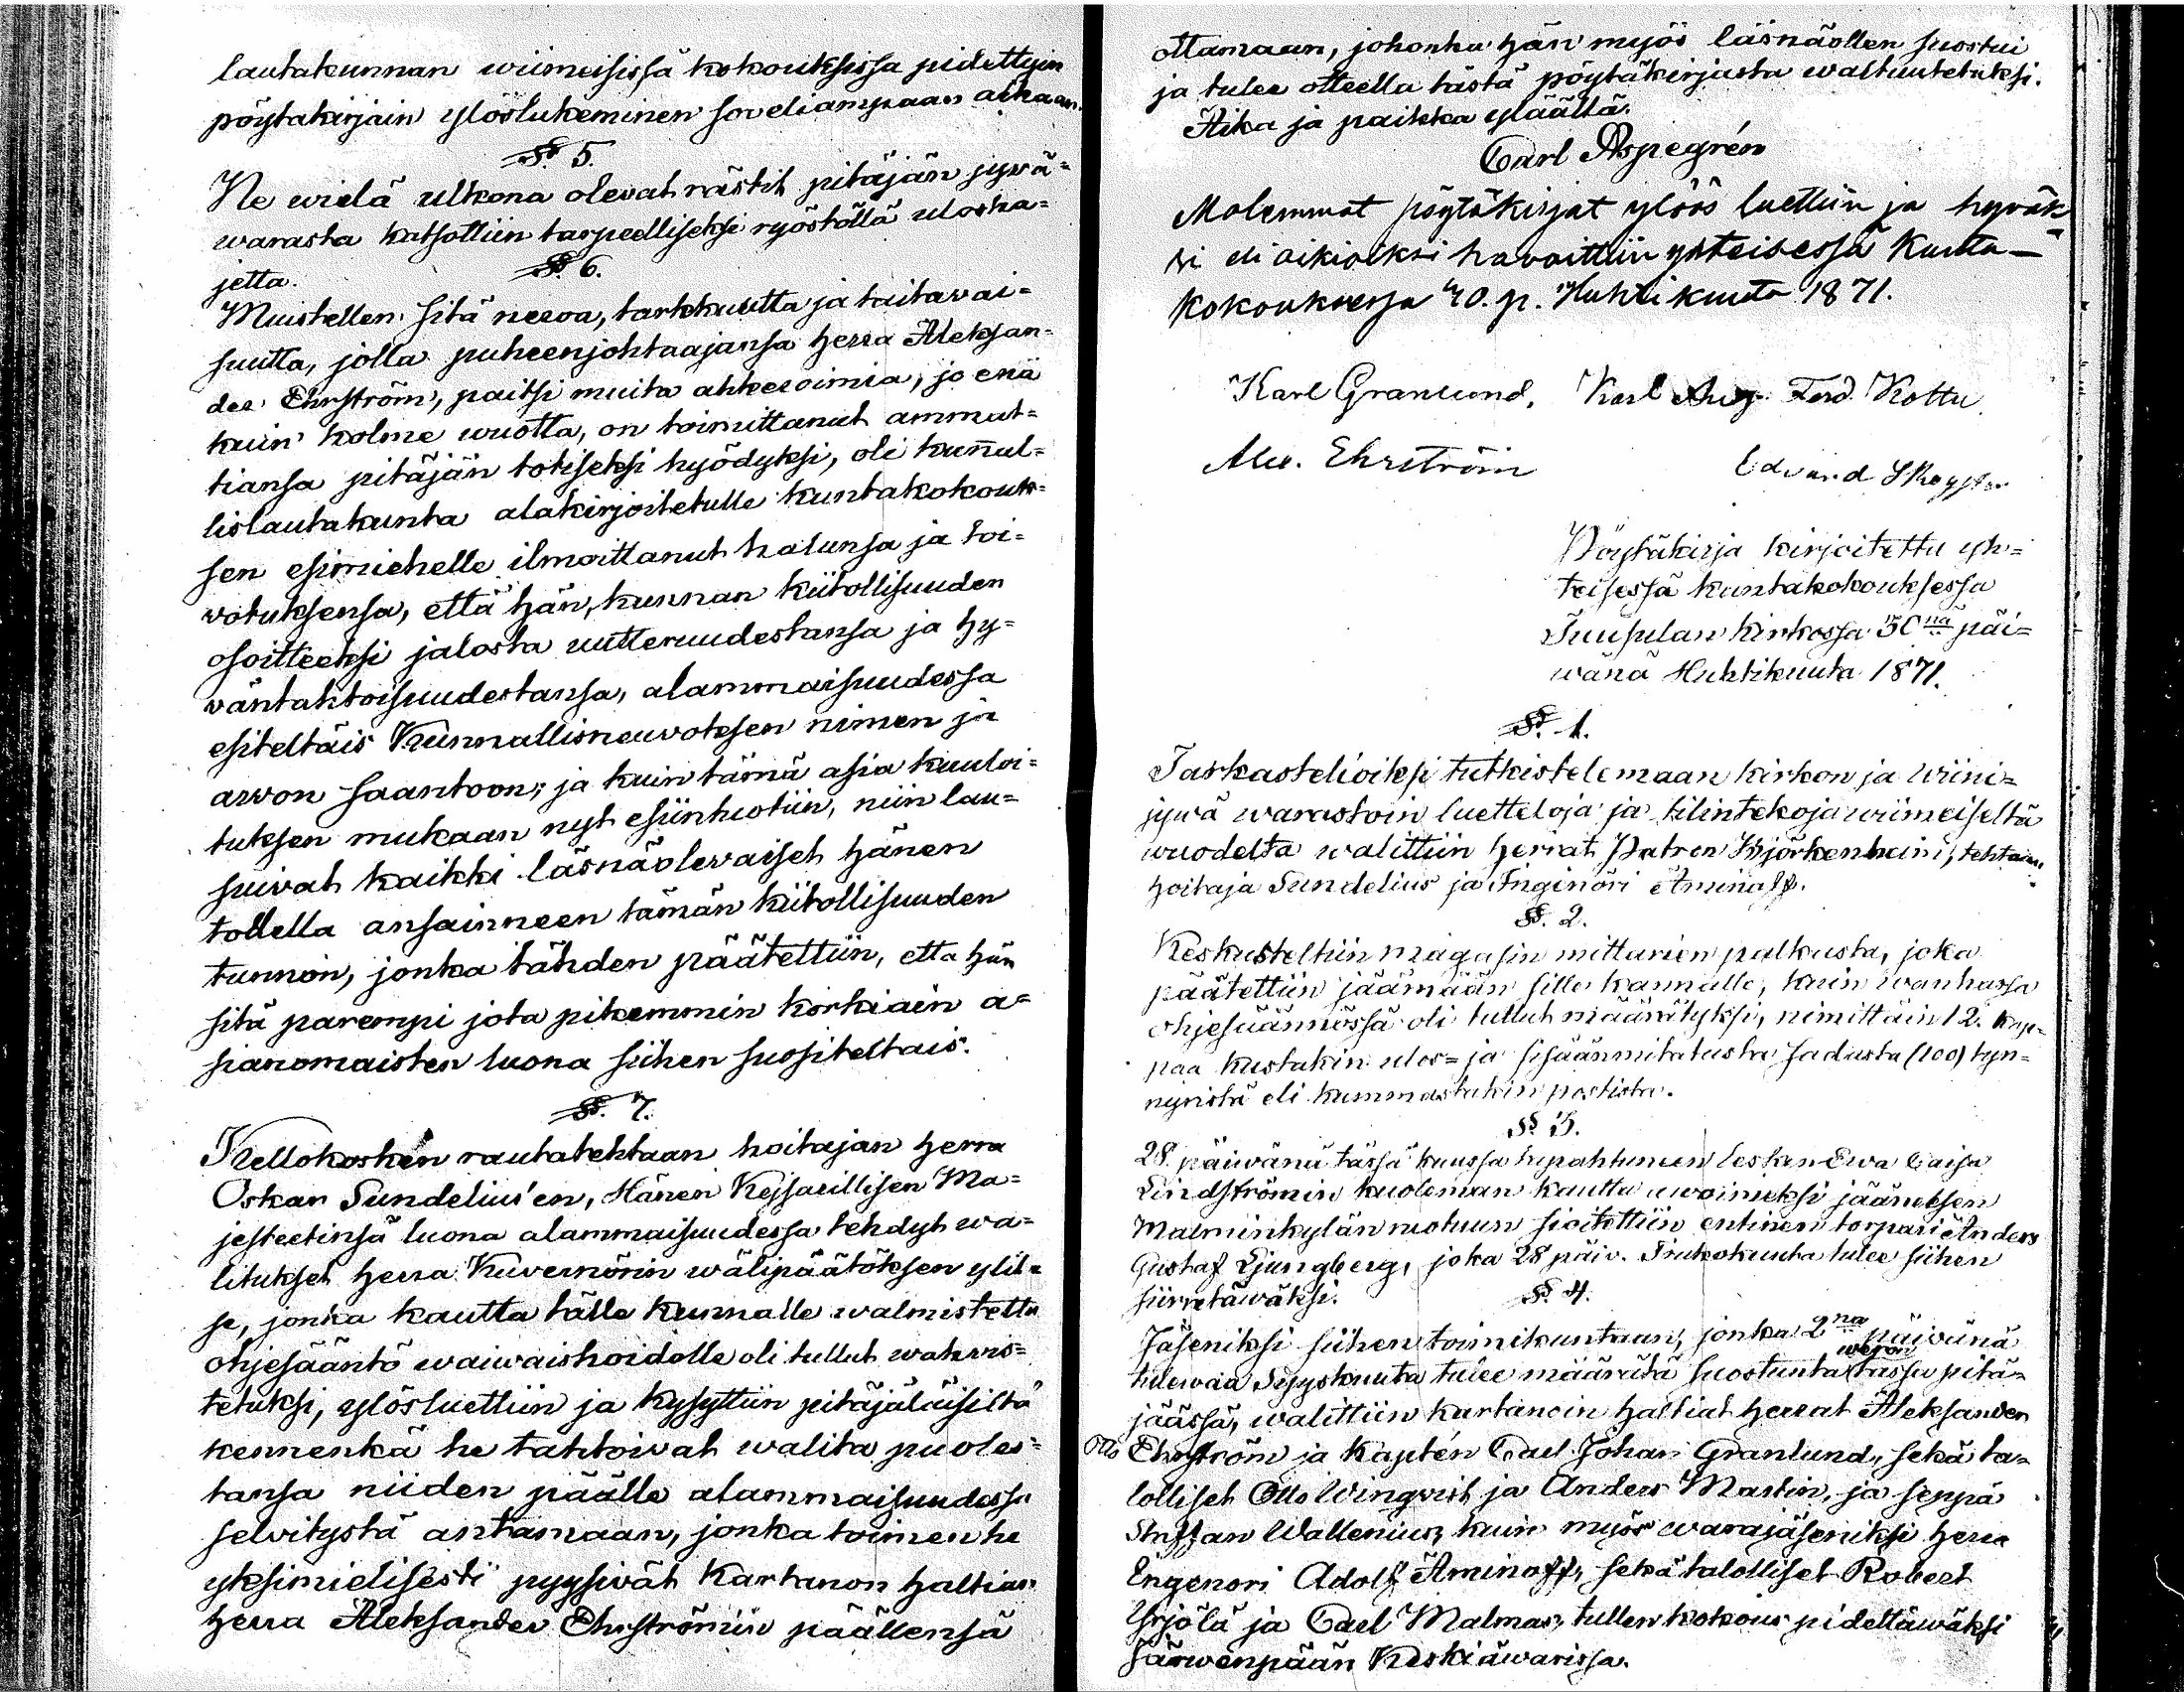 lautakunnan wiimeisissä kokouksissa pidettyin
pöytäkirjain ylöslukeminen soveliampaan aikaan.
§ 5.
Ne wielä ulkona olevat rästit pitäjän jywä=
warasta katsottiin tarpeelliseksi ryöstöllä uloska=
jetta.
§ 6.
Muistellen sitä neroa, tarkkuutta ja taitawai=
suutta, jolla puheenjohtaajansa Herra Aleksan=
der Ehrström, paitsi muita ahkeroimia, jo enä
kuin kolme wuotta, on toimittanut ammat=
tiansa pitäjän totiseksi hyödyksi, oli kunnal=
lislautakunta alakirjoitetulle kuntakokouk=
sen esimiehelle ilmoittanut halunsa ja toi=
votuksensa, että hän, kunnan kiitollisuuden
osoitteeksi jalosta uutteruudestansa ja hy=
väntahtoisuudestansa, alammaisuudessa
esiteltäis Kunnallisneuwoksen nimen ja
arwon saantoon; ja kuin tämä asia kuuloi=
tuksen mukaan nyt esiintuotiin, niin lau=
suivat kaikki läsnäolewaiset hänen
todella ansainneen tämän kiitollisuuden
tunnon, jonka tähden päätettiin, että hän
sitä parempi jota pikemmin korkiain a=
sianomaisten luona siihen suositeltais.
§. 7.
Kellokosken rautatehtaan hoitajan herra
Oskar Sundelius'en, Hänen Kejsarillisen Ma=
jesteetinsä luona alammaisuudessa tehdyt wa=
litukset herra Kuvernörin wälipäätöksen ylit=
se, jonka kautta tälle kunnalle walmistettu
ohjesääntö waiwaishoidolle oli tullut wahwis=
tetuksi, ylösluettiin ja kysyttiin pitäjäläisiltä
kennenkä he tahtoivat walita puoles=
tansa niiden päälle alammaisuudessa
selvitystä antamaan, jonka toimen he
yksimielisesti pyysivät Kartanon haltian
herra Aleksander Ehrströmin päällensä
ottamaan, johonka hän myös läsnäollen suostui
ja tulee otteella tästä pöytäkirjasta waltuutetuksi.
Aika ja paikka yläällä.
Carl Aspegrén
Molemmat pöytäkirjat ylös luettiin ja hyväk
si eli oikioiksi havaittiin yhteisessä Kunta-
kokouksessa 30. p. Huhtikuuta 1871.
Karl Granlund, Karl Aug. Ferd. Kottu
Alex. Ehrström
Edvard
Pöytäkirja kirjoitettu yh=
teisessä kuntakokouksessa
Tuusulan kirkossa 30nä päi=
wänä Huhtikuuta 1871.
§. 1.
Tarkastelioiksi tutkistelemaan kirkon ja wiini=
jywä warastoin luetteloja ja tilintekoja wiimeiseltä
wuodelta walittiin herrat Patron Björkenheim, tehtaan
hoitaja Sundelius ja Inginöri Aminoff.
§. 2.
Keskusteltiin magasin mittarien palkusta, joka
päätettiin jäämään sille kannalle, kuin wanhassa
ohjesäännössä oli tullut määrätyksi, nimittäin 12. kap=
paa kustakin ulos= ja sisäänmitatusta sadasta (100) tyn=
nyristä eli kummastakin postista.
§ 3.
28. päiwänä tässä kuussa tapahtuneen lesken Ewa Caisa
Lindströmin kuoleman kautta awoimeksi jääneesen
Malminkylän ruotuun sioitettiin entinen torpari Anders
Gustaf Ljungberg, joka 28 päiv. Toukokuuta tulee siihen
siirrettäwäksi.
§. 4.
Jäseniksi siihen toimikuntaan, jonka 2na päiwänä
tulewaa Syyskuuta tulee määrätä suostunta weron tässä pitä=
jäässä, walittiin kartanoin haltiat herrat Aleksander
Otto Ehrström ja Kaptén Carl Johan Granlund, sekä ta=
lolliset Otto Wingqvist ja Anders Martin, ja seppä
Staffan Wallenius, kuin myös warajäseniksi herra
Engenöri Adolf Aminoff, sekä talolliset Robert
Yrjölä ja Carl Malmas, tullen kokous pidettäwäksi
Järwenpään Keskiäwarissa.